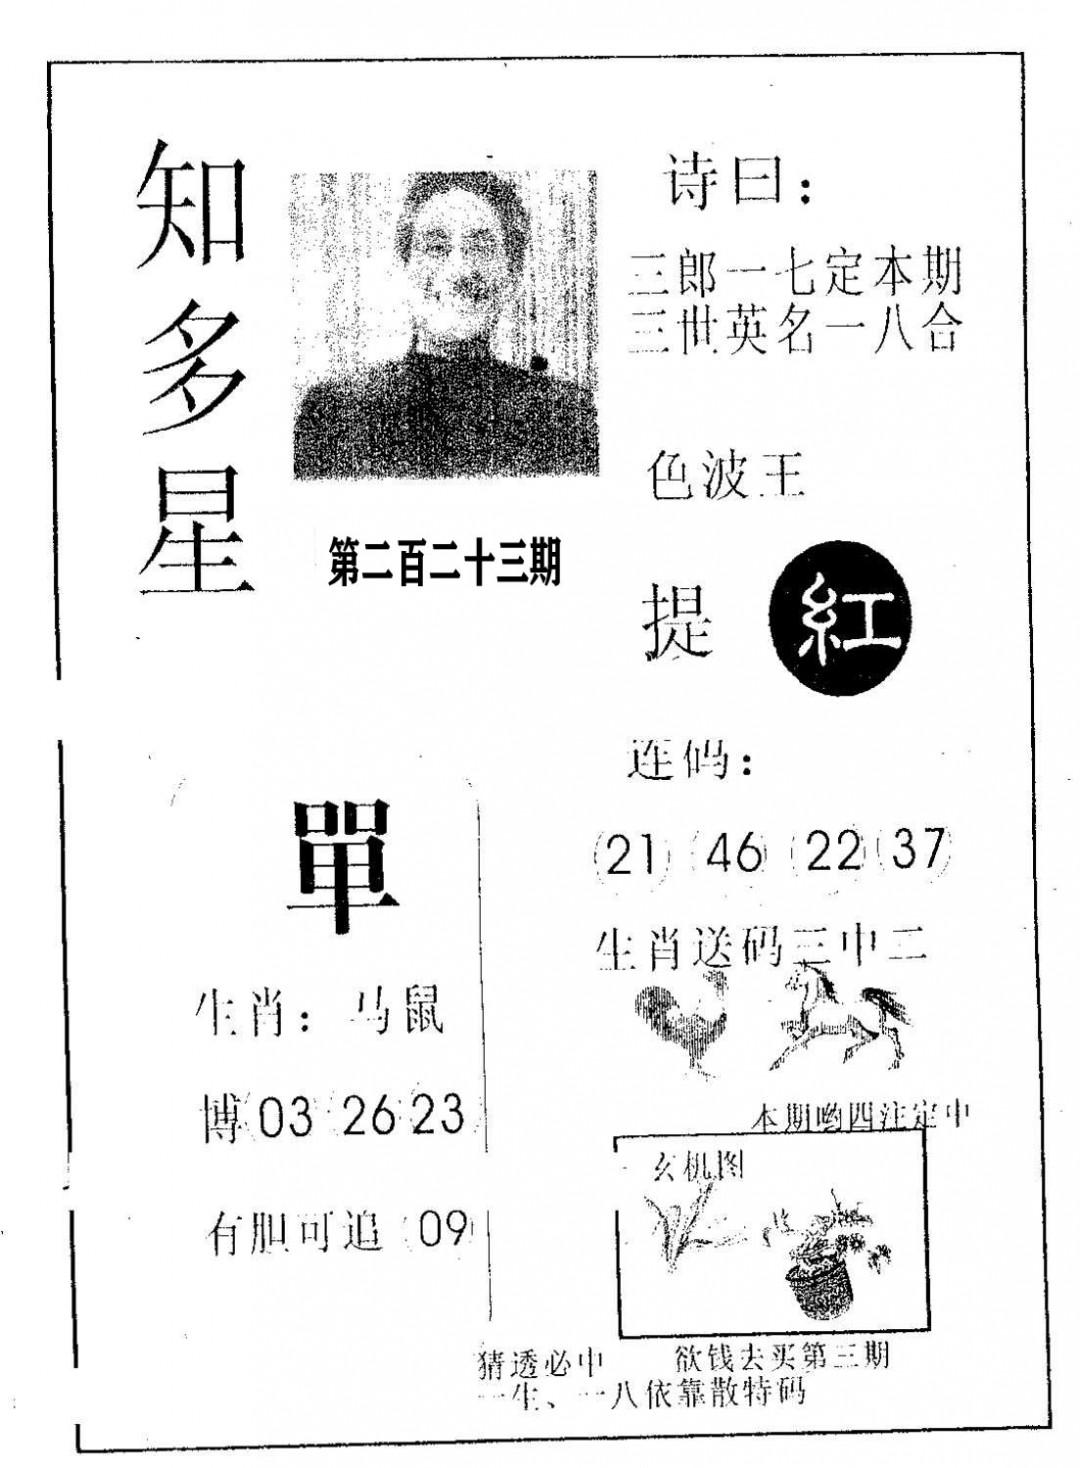 知多星
诗曰：
三郎一七定本期
三世英名一八合
色波王
第二百二十三期
提 紅
單
生肖：马鼠
博 03 26 23
有胆可追 09
连码：
21 46 22 37
生肖送码三中二
本期哟四注定中
玄机图
猜透必中 欲钱去买第三期
一生、一八依靠散特码